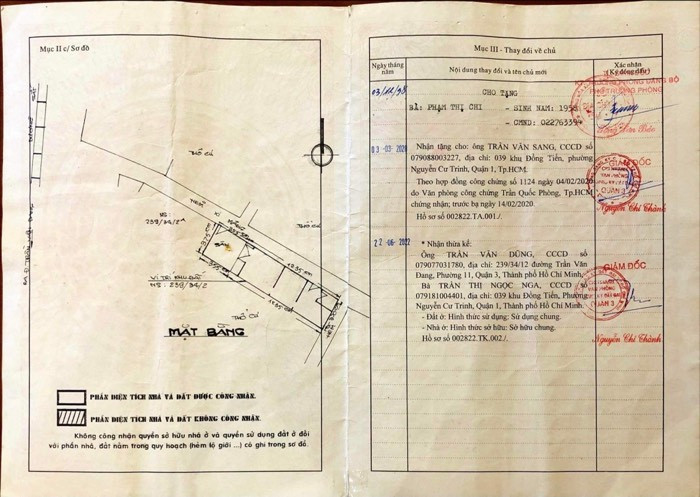 Mục II c/ Sơ đồ
THỔ CƯ
239/34/2A
HẺM
XI MĂNG
3.75
3.55
12.35
12.35
VỊ TRÍ KHU ĐẤT
MS : 239/34/2
THỔ CƯ
MẶT BẰNG
PHẦN DIỆN TÍCH NHÀ VÀ ĐẤT ĐƯỢC CÔNG NHẬN.
PHẦN DIỆN TÍCH NHÀ VÀ ĐẤT KHÔNG CÔNG NHẬN.
Không công nhận quyền sở hữu nhà ở và quyền sử dụng đất ở đối
với phần nhà, đất nằm trong quy hoạch (hẻm lộ giới ...) có ghi trong sơ đồ.
Mục III - Thay đổi về chủ
Ngày tháng
năm
Nội dung thay đổi và tên chủ mới
Xác nhận
(Ký đóng dấu)
CHO TẶNG
BÀ: PHẠM THỊ CHI - SINH NĂM: 1958
- CMND: 022763394
PHÓ TRƯỞNG PHÒNG
03-03-2020
Nhận tặng cho: ông TRẦN VĂN SANG, CCCD số
079088003227, địa chỉ: 039 khu Đồng Tiến, phường
Nguyễn Cư Trinh, Quận 1, Tp.HCM.
Theo hợp đồng công chứng số 1124 ngày 04/02/2020
do Văn phòng công chứng Trần Quốc Phòng, Tp.HCM
chứng nhận; trước bạ ngày 14/02/2020.
Hồ sơ số 002822.TA.001./.
GIÁM ĐỐC
CHI NHÁNH
VĂN PHÒNG
Nguyễn Chí Thành
22-06-2022
* Nhận thừa kế:
Ông TRẦN VĂN DŨNG, CCCD số
079077031780, địa chỉ: 239/34/12 đường Trần Văn
Đang, Phường 11, Quận 3, Thành phố Hồ Chí Minh.
Bà TRẦN THỊ NGỌC NGA, CCCD số
079181004401, địa chỉ: 039 khu Đồng Tiến, Phường
Nguyễn Cư Trinh, Quận 1, Thành phố Hồ Chí Minh.
- Đất ở: Hình thức sử dụng: Sử dụng chung.
- Nhà ở: Hình thức sở hữu: Sở hữu chung.
Hồ sơ số 002822.TK.002./.
GIÁM ĐỐC
CHI NHÁNH
VĂN PHÒNG
QUẬN 3
Nguyễn Chí Thành